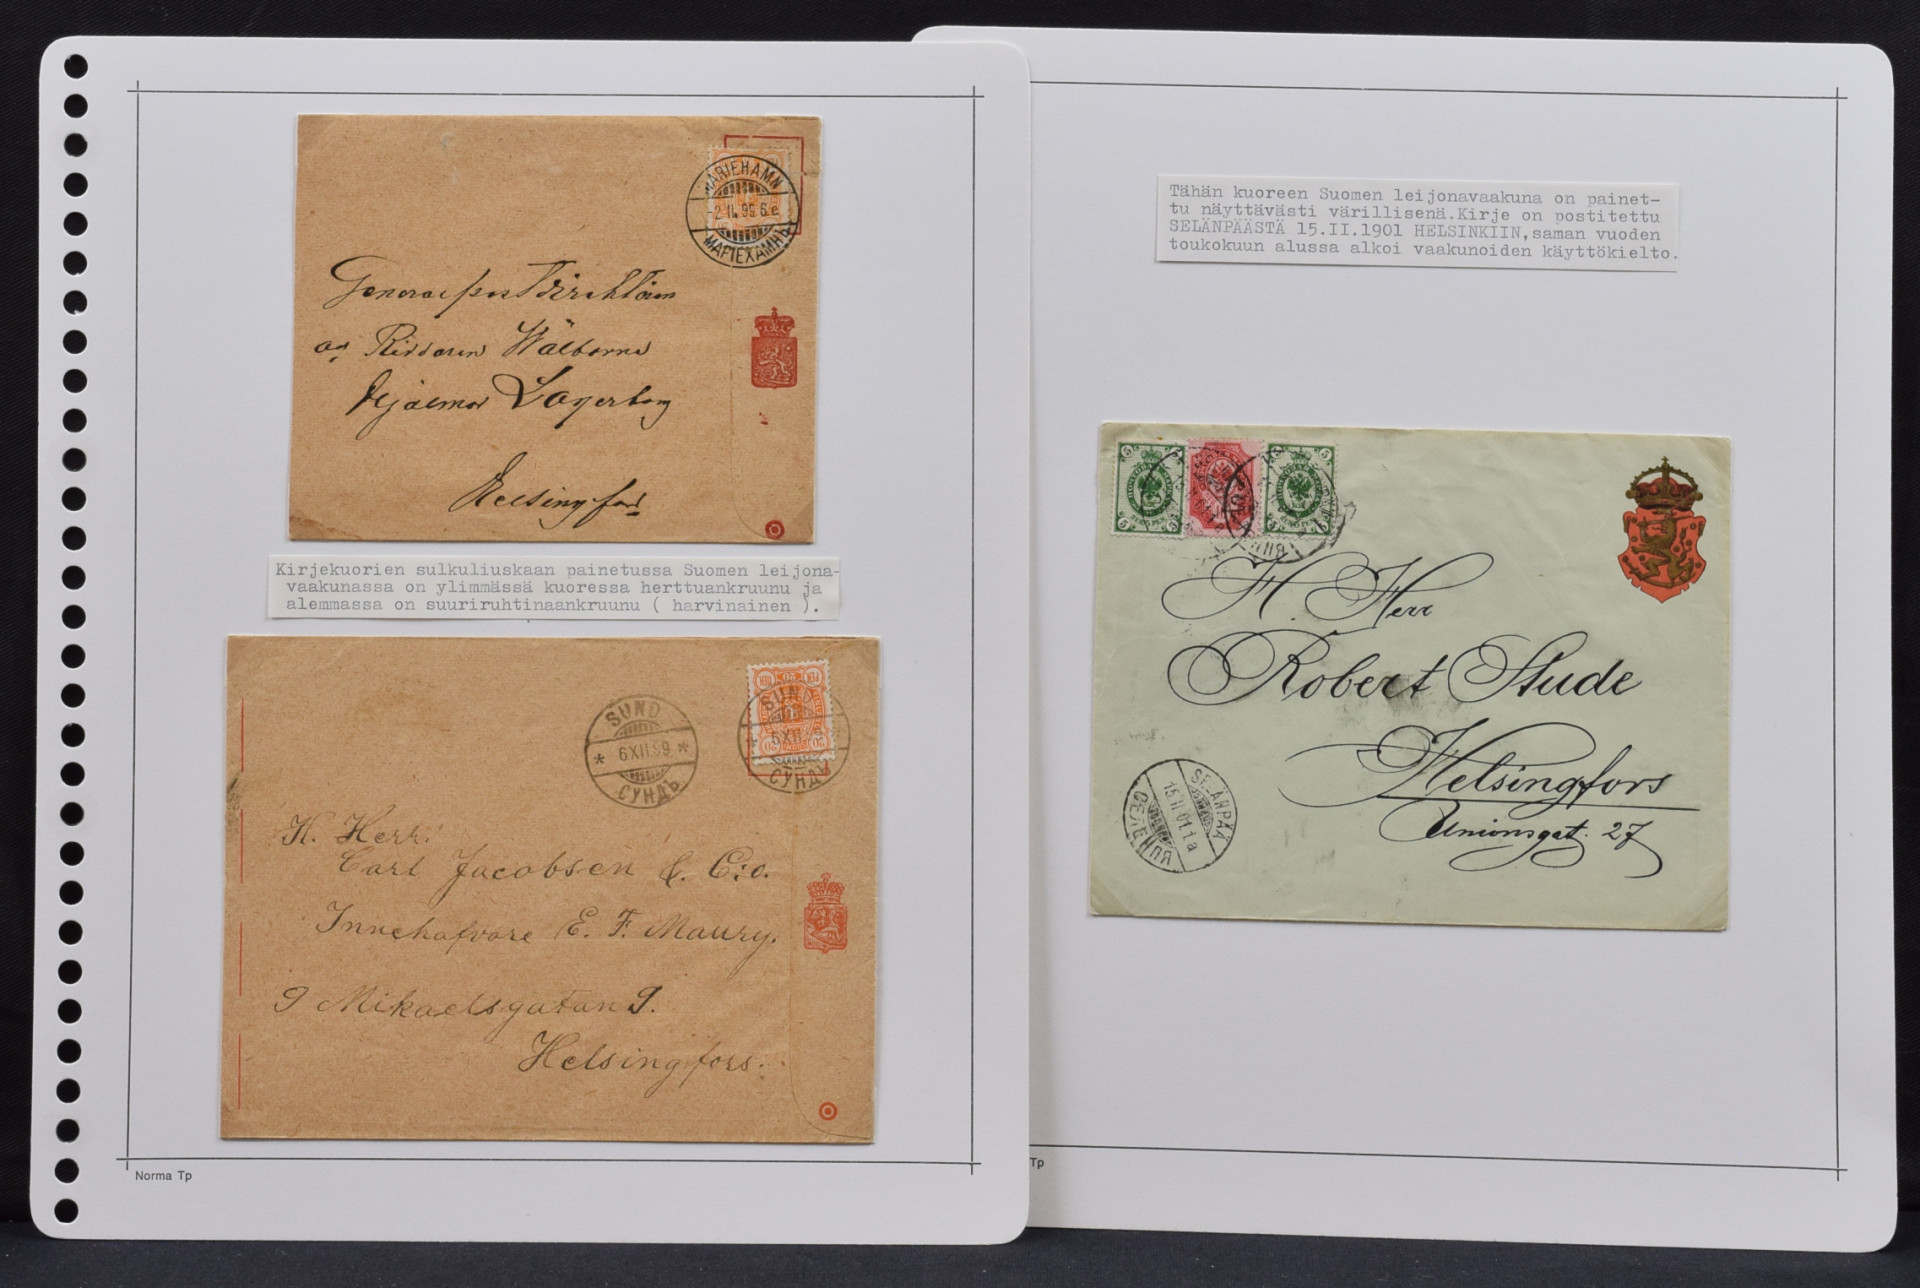 MARIEHAMN
-2.II.99.6e
МАРІЕХАМНЪ
Generalpostdirektören
och Riddaren Wälborne
Hjalmar Lagerborg
Helsingfors
Kirjekuorien sulkuliuskaan painetussa Suomen leijona-
vaakunassa on ylimmässä kuoressa herttuankruunu ja
alemmassa on suuriruhtinaankruunu ( harvinainen ).
SUND
* 6XII.99 *
СУНДЪ
SUND
6XII.9
СУНДЪ
PEN 20 PEN
20 20
H. Herr.
Carl Jacobsen & C:o.
Innehafvare E. F. Maury.
9 Mikaelsgatan 9.
Helsingfors.
Norma Tp
Tähän kuoreen Suomen leijonavaakuna on painet-
tu näyttävästi värillisenä.Kirje on postitettu
SELÄNPÄÄSTÄ 15.II.1901 HELSINKIIN,saman vuoden
toukokuun alussa alkoi vaakunoiden käyttökielto.
5 5
5 5
5 5
5 5
H. Herr
Robert Stude
Helsingfors
Unionsgat. 27
SELÄNPÄÄ
15.II.01.1a
Tp